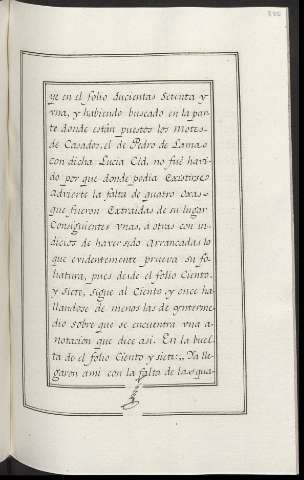 ye en el folio ducientas Setenta y
vna, y habiendo buscado en la par-
te donde están puestos los motes-
de Casados, el de Pedro de Lamas
con dicha Lucia Cid, no fué havi-
do por que donde pedia Existir se
advierte la falta de quatro oxas-
que fueron Extraidas de su lugar
Consiguientes vnas, á otras con in-
dicios de haver sido Arrancadas lo
que evidentemente prueva su fo-
liatura, pues desde el folio Ciento,
y siete, sigue al Ciento, y once ha
llandose de menos las de yntterme-
dio sobre que se encuentra vna a-
notacion que dice asi. En la buel
ta de el folio Ciento y siete:,, Ya lle-
garon a mi con la falta de las qua-